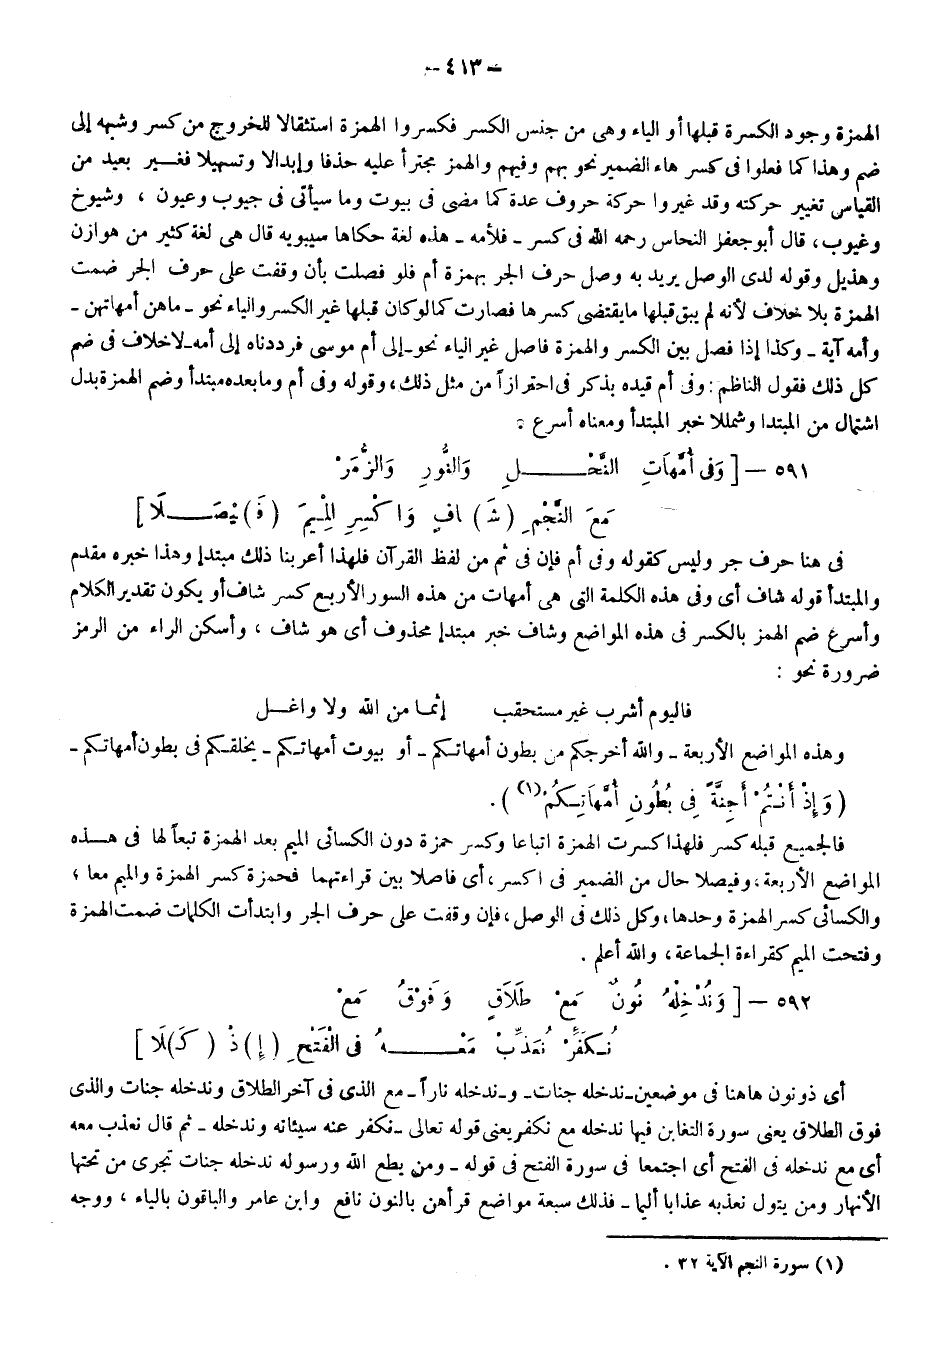 – ٤١٣ –
الهمزة وجود الكسرة قبلها أو الياء وهى من جنس الكسر فكسروا الهمزة استثقالا للخروج من كسر وشبهه إلى
ضم وهذا كما فعلوا فى كسر هاء الضمير نحو بهم وفيهم والهمز مجترأ عليه حذفا وإبدالا وتسهيلا فغير بعيد من
القياس تغيير حركته وقد غيروا حركة حروف عدة كما مضى فى بيوت وما سيأتى فى جيوب وعيون ، وشيوخ
وغيوب، قال أبوجعفر النحاس رحمه الله فى كسر – فلأمه – هذه لغة حكاها سيبويه قال هى لغة كثير من هوازن
وهذيل وقوله لدى الوصل يريد به وصل حرف الجر بهمزة أم فلو فصلت بأن وقفت على حرف الجر ضمت
الهمزة بلا خلاف لأنه لم يبق قبلها مايقتضى كسرها فصارت كمالوكان قبلها غير الكسر والياء نحو – ماهن أمهاتهن –
وأمه آية – وكذا إذا فصل بين الكسر والهمزة فاصل غير الياء نحو–إلى أم موسى فرددناه إلى أمه–لاخلاف فى ضم
كل ذلك فقول الناظم : وفى أم قيده بذكر فى احترازاً من مثل ذلك، وقوله وفى أم ومابعده مبتدأ وضم الهمزة بدل
اشتمال من المبتدا وشمللا خبر المبتدأ ومعناه أسرع :
٥٩١ – [ وَفى أُمَّهَاتِ النَّحْــلِ وَالنُّورِ وَالزُّمَرْ
مَعَ النَّجْمِ (شَ) افٍ وَاكْسِرِ الْمِيمَ (فَ)يْصَــلَا ]
فى هنا حرف جر وليس كقوله وفى أم فإن فى ثم من لفظ القرآن فلهذا أعربنا ذلك مبتدإ وهذا خبره مقدم
والمبتدأ قوله شاف أى وفى هذه الكلمة التى هى أمهات من هذه السور الأربع كسر شاف أو يكون تقدير الكلام
وأسرع ضم الهمز بالكسر فى هذه المواضع وشاف خبر مبتدإ محذوف أى هو شاف ، وأسكن الراء من الرمز
ضرورة نحو :
فاليوم أشرب غير مستحقب إثما من الله ولا واغــل
وهذه المواضع الأربعة – والله أخرجكم من بطون أمهاتكم – أو بيوت أمهاتكم – يخلقكم فى بطون أمهاتكم –
(وَإِذْ أَنْتُمْ أَجِنَّةٌ فِى بُطُونِ أُمَّهَاتِكُمْ(١) ) .
فالجميع قبله كسر فلهذا كسرت الهمزة اتباعا وكسر حمزة دون الكسائى الميم بعد الهمزة تبعاً لها فى هــذه
المواضع الأربعة ، وفيصلا حال من الضمير فى اكسر، أى فاصلا بين قراءتهما فحمزة كسر الهمزة والميم معا ،
والكسائى كسر الهمزة وحدها، وكل ذلك فى الوصل، فإن وقفت على حرف الجر وابتدأت الكلمات ضمت الهمزة
وفتحت الميم كقراءة الجماعة، والله أعلم .
٥٩٢ – [ وَنُدْخِلْهُ نُونٌ مَعْ طَلَاقٍ وَفَوْقُ مَعْ
نُكَفِّرْ نُعَذِّبْ مَعْــهُ فى الْفَتْحِ (إِ) ذْ (كَ)لَا ]
أى ذونون هاهنا فى موضعين–ندخله جنات– و–ندخله ناراً– مع الذى فى آخر الطلاق وندخله جنات والذى
فوق الطلاق يعنى سورة التغابن فيها ندخله مع نكفر يعنى قوله تعالى –نكفر عنه سيئاته وندخله – ثم قال نعذب معه
أى مع ندخله فى الفتح أى اجتمعا فى سورة الفتح فى قوله – ومن يطع الله ورسوله ندخله جنات تجرى من تحتها
الأنهار ومن يتول نعذبه عذابا أليما – فذلك سبعة مواضع قرأهن بالنون نافع وابن عامر والباقون بالياء ، ووجه
(١) سورة النجم الآية ٣٢ .